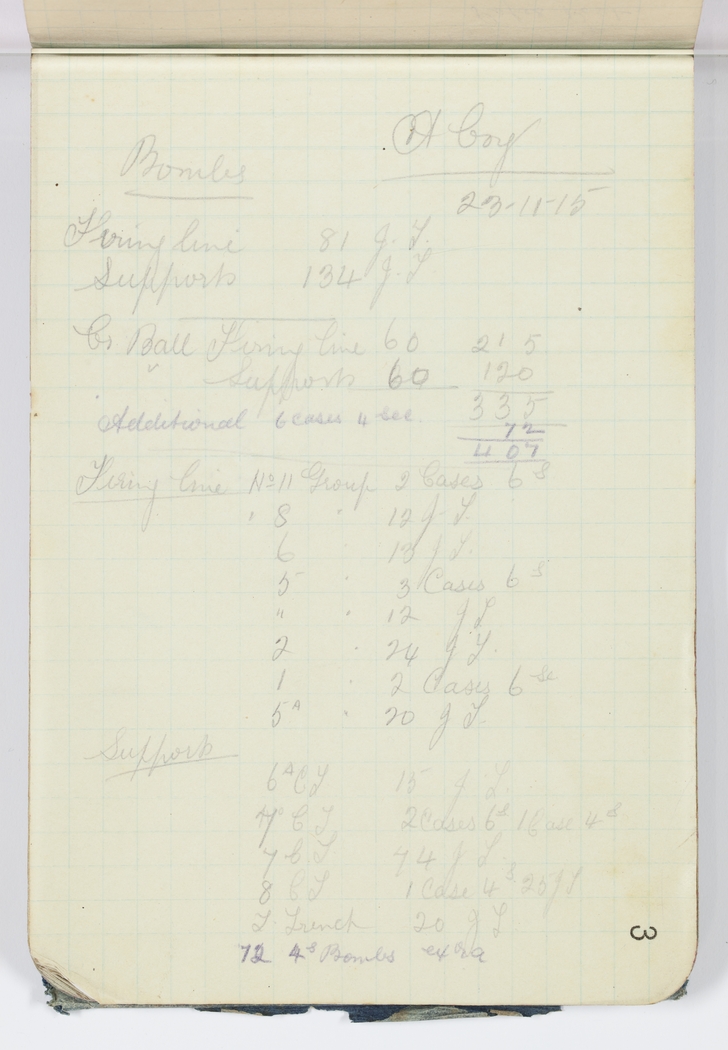 A Coy
Bombs
23-11-15
Firing line 81 J. T.
Supports 134 J. T.
Cr. Ball Firing line 60 215
" Supports 60 120
335
Additional 6 cases 4 sec. 72
407
Firing line No 11 Group 2 Cases 6 s
" 8 " 12 J. T.
6 " 13 J. T.
5 " 3 Cases 6 s
" " 12 J T
2 " 24 J T.
1 " 2 Cases 6 sec
5 A " 20 J T.
Supports
6 A C T 15 J. T.
7 A C T 2 Cases 6 s 1 Case 4 s
7 C T 74 J T
8 C T 1 Case 4 s 25 J T
T Trench 20 J T
72 4 s Bombs extra
3